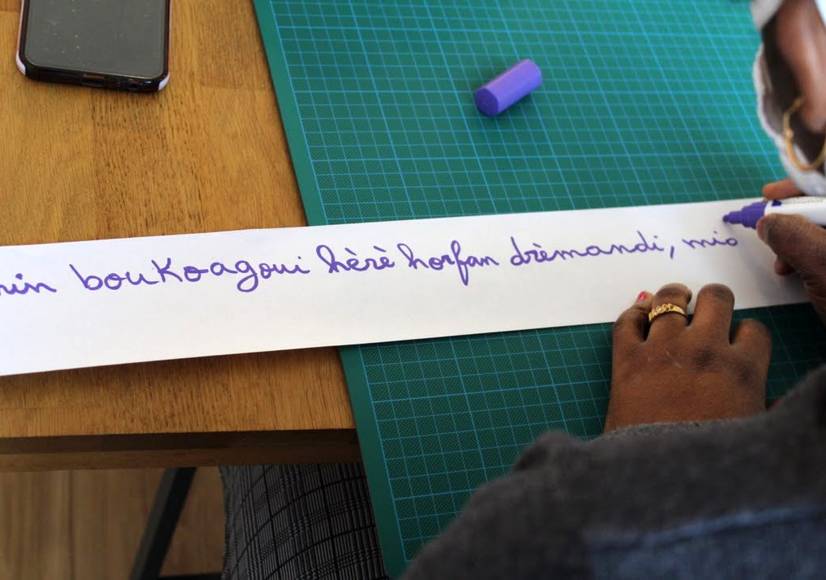 boukoagoui hèrè horfan drèmandi, mio